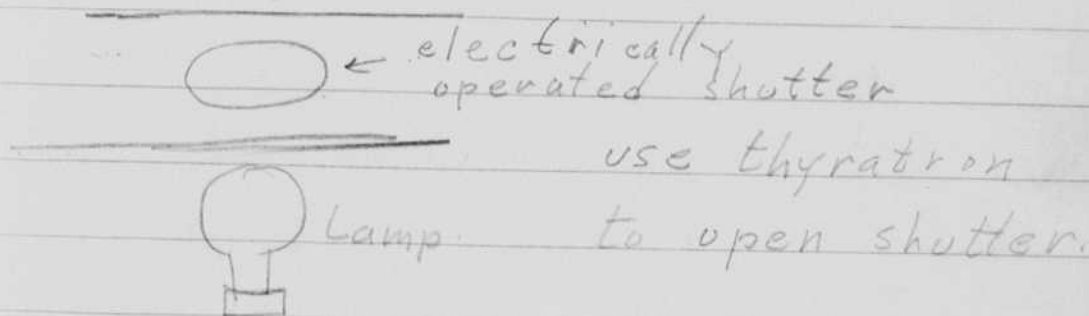 electrically
operated shutter
use thyratron
Lamp to open shutter.